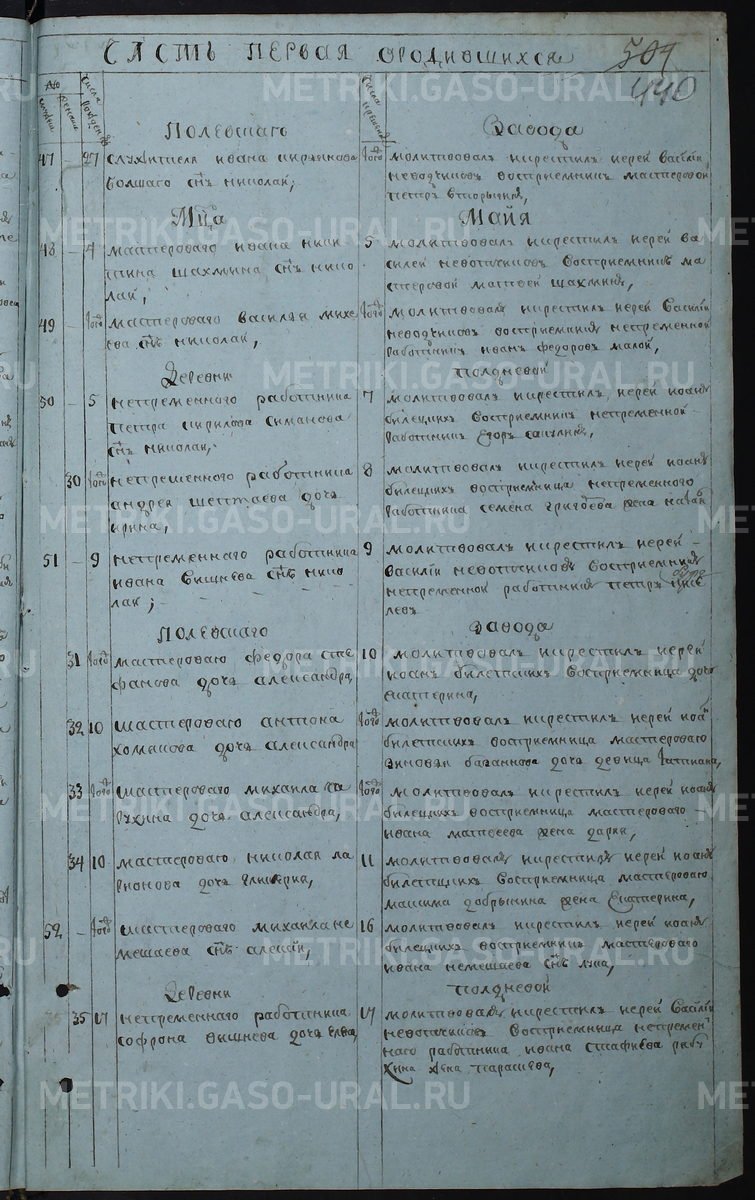 Часть первая ородившихся
509
440
Полевшаго Завода
47 27 служителя ивана кирьянова
болшаго снъ николай;
тогож молитвовалъ икрестилъ иерей василй
невотчиковъ восприемникъ мастеровой
петръ вторыгинъ,
Мца Майя
48 4 мастероваго ивана ники
тина шахмина снъ нико
лай;
5 молитвовалъ икрестилъ иерей ва
силей невотчиковъ восприемникъ ма
стеровой матвей шахминъ,
49 тогож мастероваго василья михе
ева снъ николай,
тогож молитвовалъ икрестилъ иерей василй
невотчиковъ восприемникъ непременной
работникъ иванъ федоровъ малой,
Деревни полдневой
50 5 непременного работника
петра кирилова симанова
снъ николай,
7 молитвовалъ икрестилъ иерей иоанъ
билецкихъ восприемникъ непременной
работникъ егоръ
30 тогож непременного работника
андрея дочь
ирина,
8 молитвовалъ икрестилъ иерей иоанъ
билецкихъ восприемница непременного
работника семена григорева жена
51 9 непременнаго работника
ивана вишнева снъ нико
лай;
9 молитвовалъ икрестилъ иерей
василй невотчиковъ восприемникъ
непременной работникъ петръ кисе
левъ
Полевшаго Завода
31 тогож мастероваго федора сте
фанова дочь александра,
10 молитвовалъ икрестилъ иерей
иоанъ билетцкихъ восприемница дочь
екатерина,
32 10 мастероваго антона
хомякова дочь александра
тогож молитвовалъ икрестилъ иерей иоанъ
билетцкихъ восприемница мастероваго
зиновья дочь девица татиана,
33 тогож мастероваго михаила
дочь александра,
тогож молитвовалъ икрестилъ иерей иоанъ
билецкихъ восприемница мастероваго
ивана матвеева жена дарья,
34 10 мастероваго николая ла
рионова дочь гликерия,
11 молитвовалъ икрестилъ иерей иоанъ
билетцкихъ восприемница мастероваго
максима добрынина жена екатерина,
52 тогож мастероваго михаила не
мешаева снъ алексий,
16 молитвовалъ икрестилъ иерей иоанъ
билецкихъ восприемникъ мастероваго
ивана немешаева снъ лука,
Деревни полдневой
35 17 непременнаго работника
софрона вишнева дочь елена,
17 молитвовалъ икрестилъ иерей василй
невотчиковъ восприемница непремен
наго работника ивана рябу
хина жена парасиева,
METRIKI.GASO-URAL.RU